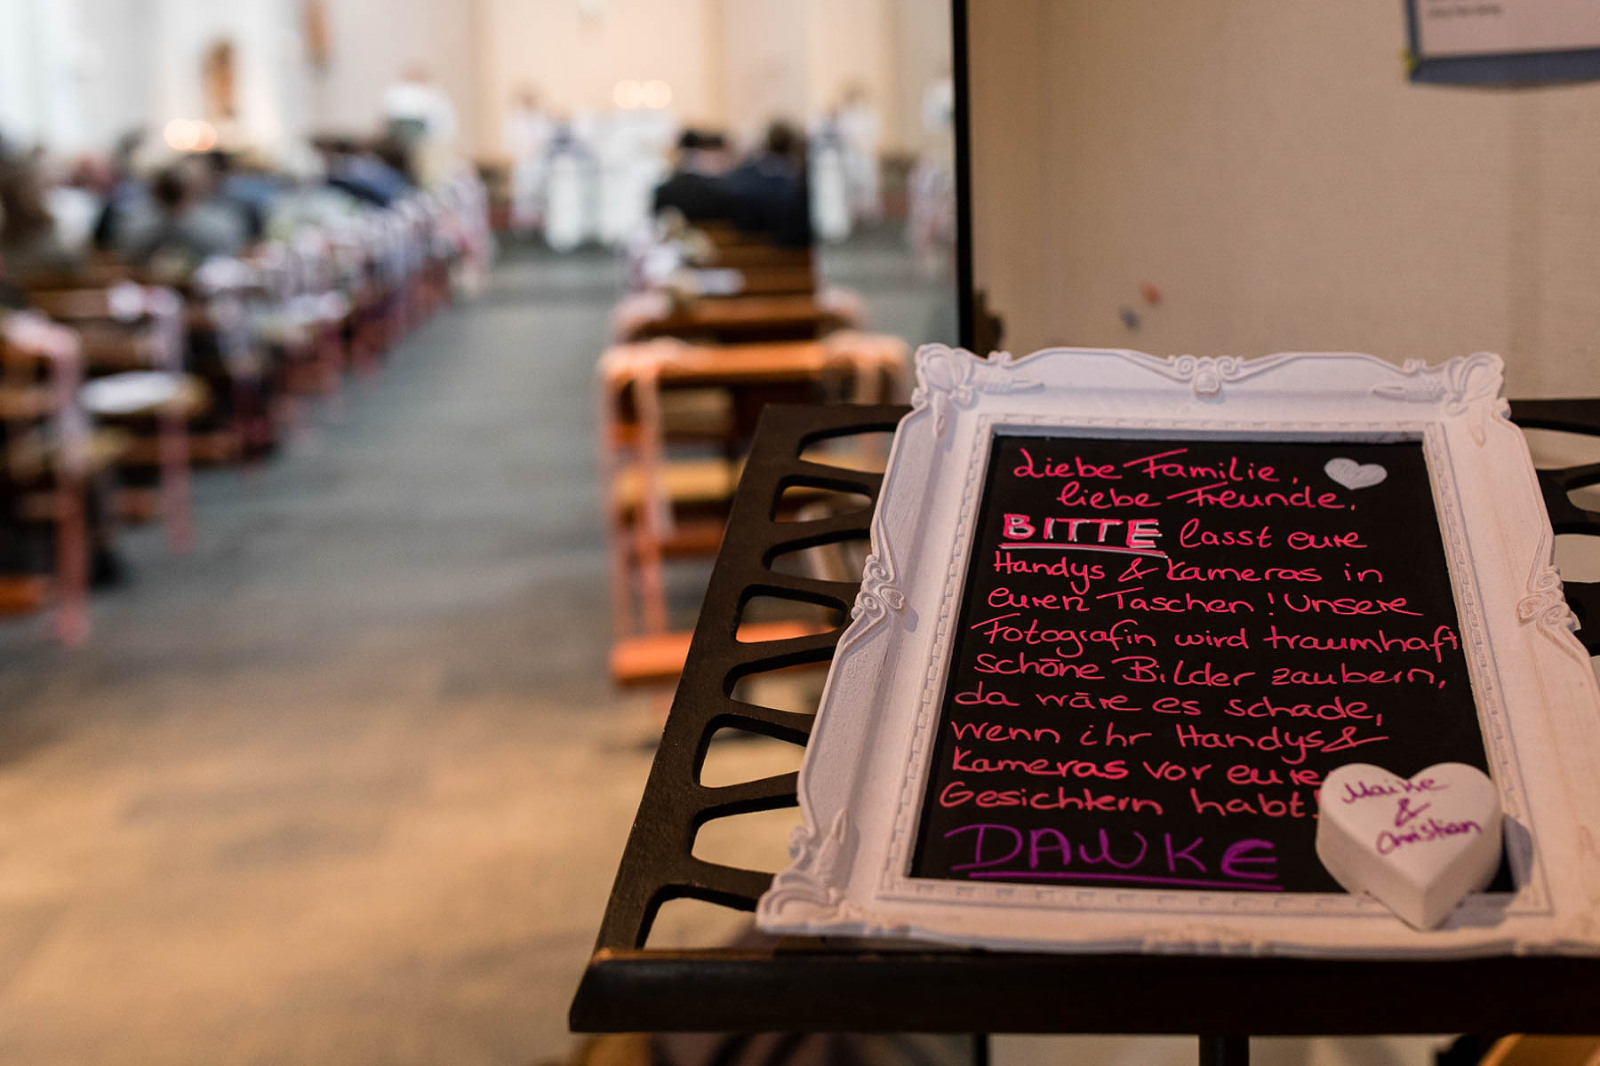 Liebe Familie,
liebe Freunde,
BITTE lasst eure
Handys & Kameras in
euren Taschen! Unsere
Fotografin wird traumhaft
schöne Bilder zaubern,
da wäre es schade,
wenn ihr Handys &
Kameras vor eure
Gesichtern habt!
DANKE
Maike
&
Christian